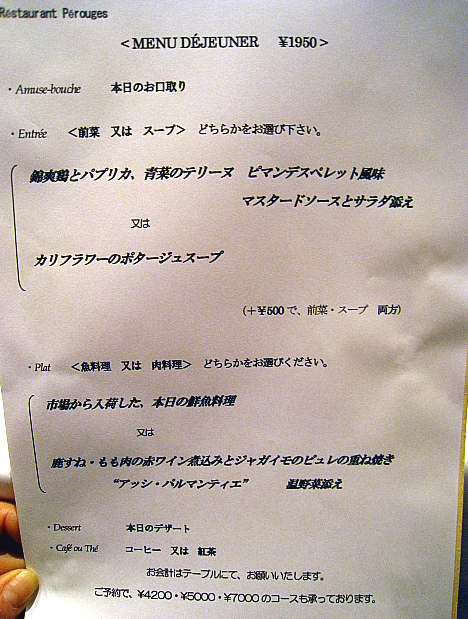 Restaurant Pérouges
＜MENU DÉJEUNER　¥1950＞
・Amuse-bouche　本日のお口取り
・Entrée　＜前菜　又は　スープ＞　どちらかをお選び下さい。
錦爽鶏とパプリカ、青菜のテリーヌ　ピマンデスペレット風味
マスタードソースとサラダ添え
又は
カリフラワーのポタージュスープ
(＋¥500で、前菜・スープ　両方)
・Plat　＜魚料理　又は　肉料理＞　どちらかをお選びください。
市場から入荷した、本日の鮮魚料理
又は
鹿すね・もも肉の赤ワイン煮込みとジャガイモのピュレの重ね焼き
“アッシ・パルマンティエ”　温野菜添え
・Dessert　本日のデザート
・Café ou Thé　コーヒー　又は　紅茶
お会計はテーブルにて、お願いいたします。
ご予約で、¥4200・¥5000・¥7000のコースも承っております。